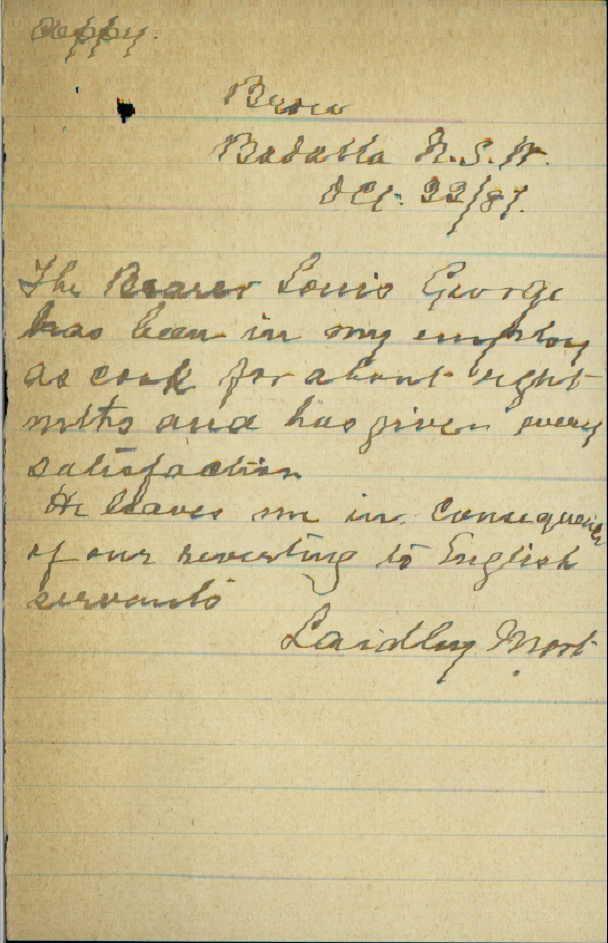 Copy.
Brou
Bodalla N.S.W.
Oct. 22/87.
The Bearer Louis George
has been in my employ
as cook for about eight
mths and has given every
satisfaction
He leaves me in consequence
of our reverting to English
servants
Laidley Mort